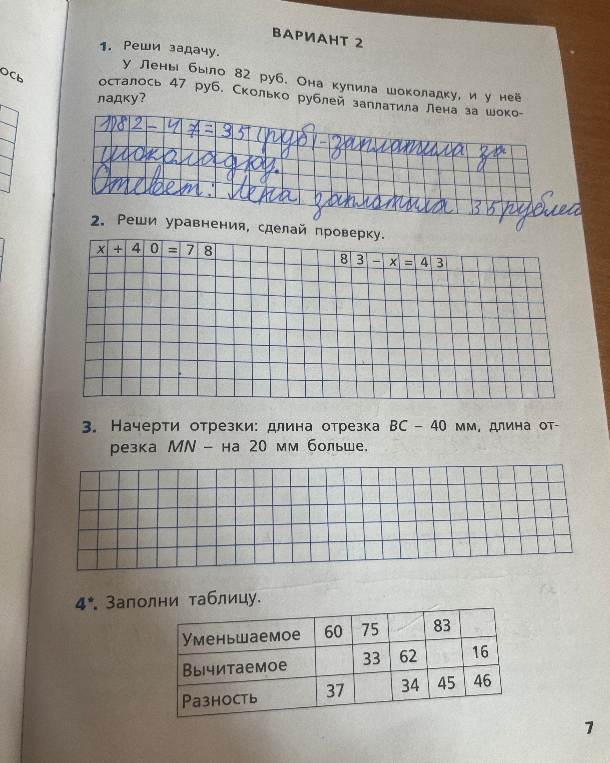 ось
ВАРИАНТ 2
1. Реши задачу.
У Лены было 82 руб. Она купила шоколадку, и у неё
осталось 47 руб. Сколько рублей заплатила Лена за шоко-
ладку?
1) 82 - 47 = 35 (руб) - заплатила за
шоколадку.
Ответ: Лена заплатила 35 рублей
2. Реши уравнения, сделай проверку.
x + 40 = 78 83 - x = 43
3. Начерти отрезки: длина отрезка BC – 40 мм, длина от-
резка MN – на 20 мм больше.
4*. Заполни таблицу.
Уменьшаемое 60 75 83
Вычитаемое 33 62 16
Разность 37 34 45 46
7